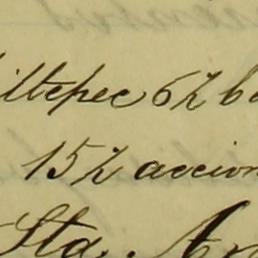 iltepec 62 ba
152 accion
Sta An